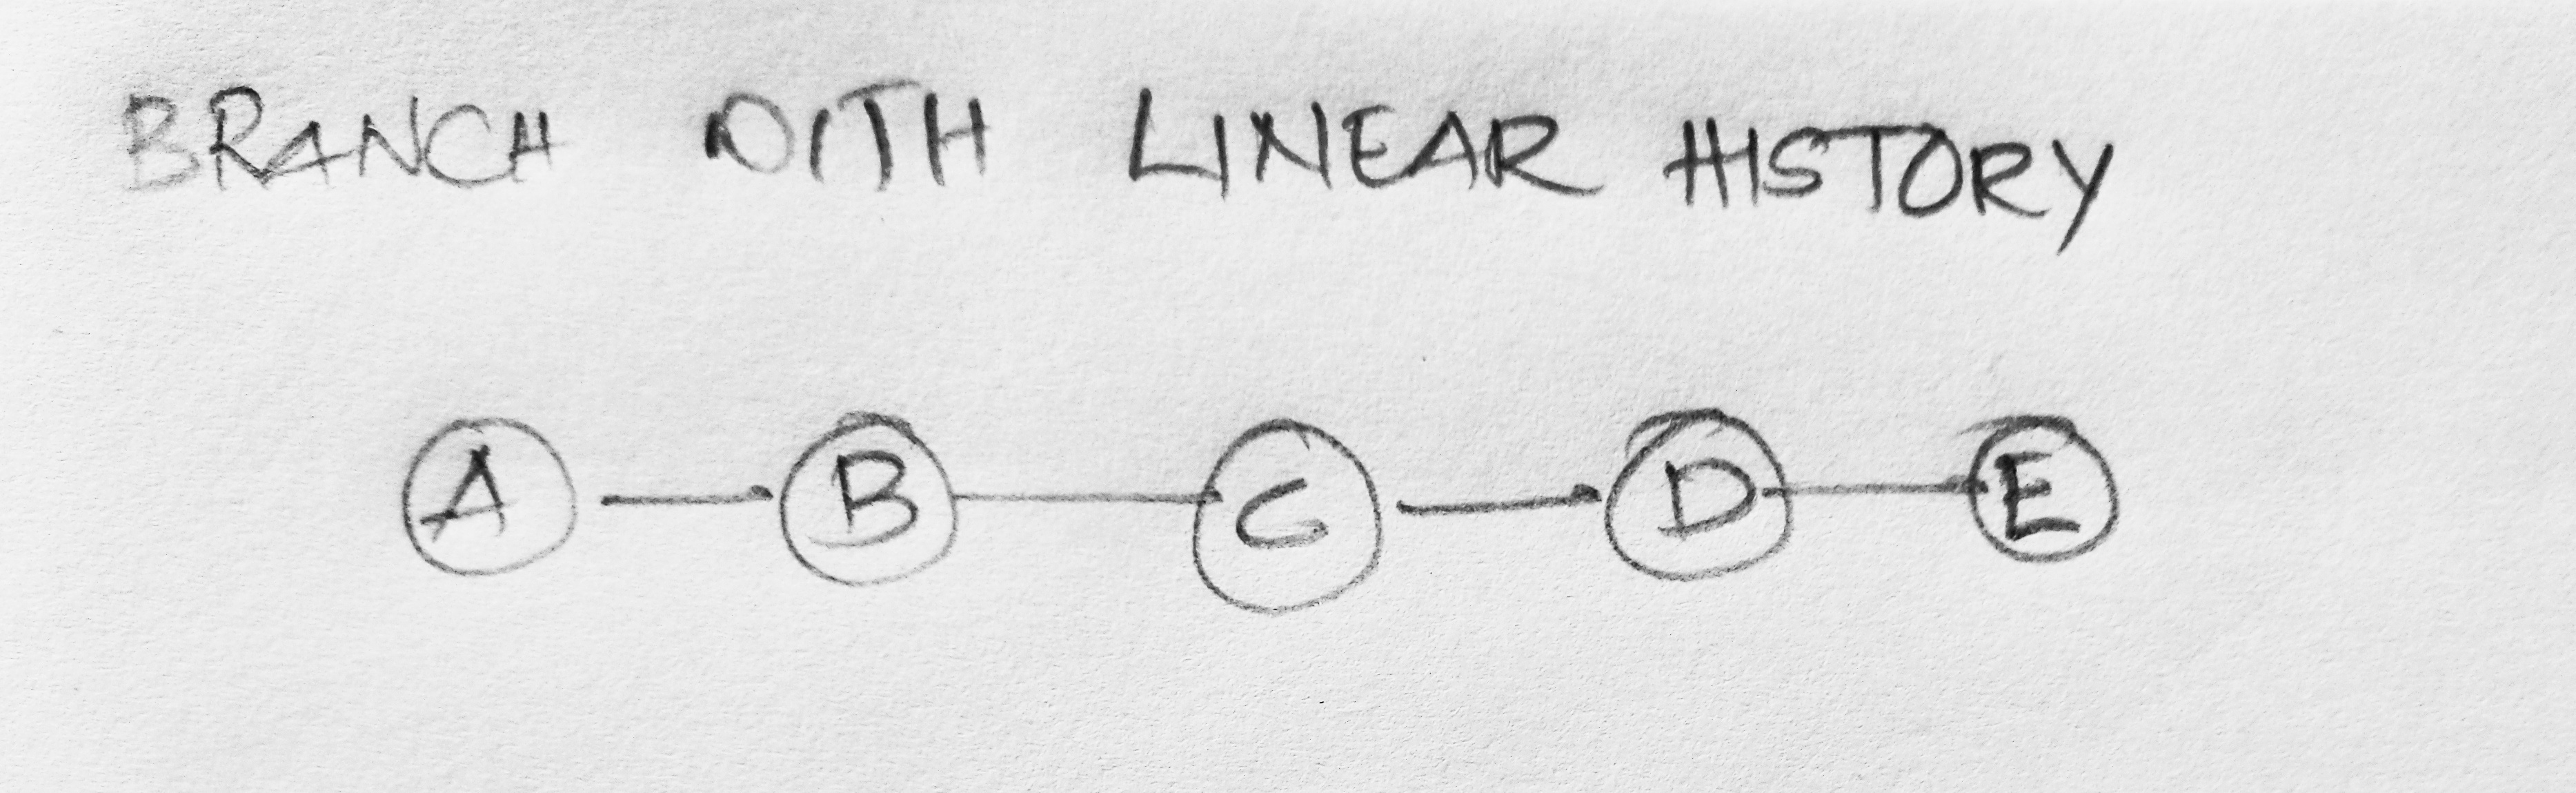 BRANCH WITH LINEAR HISTORY
A B C D E